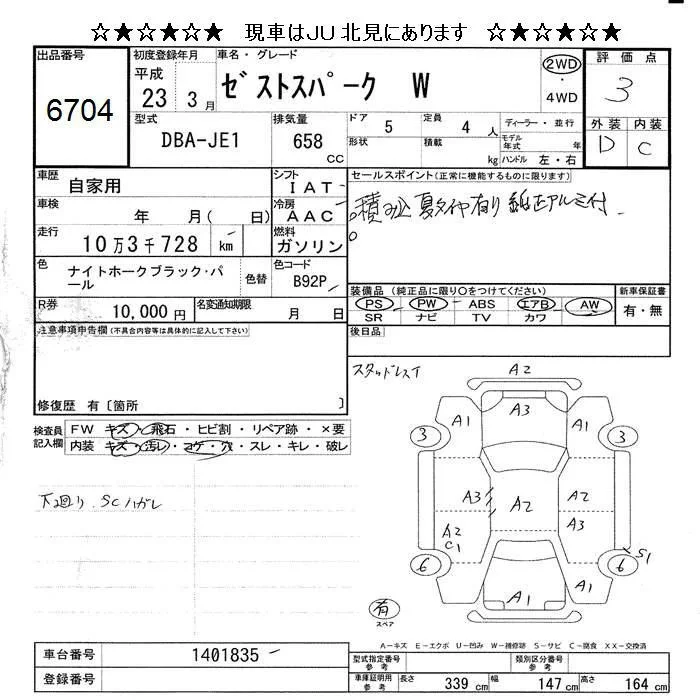 ☆★☆★☆★☆ 現車はJU北見にあります ☆★☆★☆★☆
出品番号
6704
初度登録年月
平成
23 3月
車名・グレード
ゼストスパーク W
2WD
・
4WD
評価点
3
外装 内装
D C
型式
DBA-JE1
排気量
658
CC
ドア 5
定員 4 人
形状
積載 kg
ディーラー・並行
モデル年式 年
ハンドル 左・右
車歴
自家用
シフト
IAT
車検
年 月( 日)
冷房
AAC
走行
10万3千728 km
燃料
ガソリン
色
ナイトホークブラック・パール
色替
色コード
B92P
R券
10,000円
名変通知期限
月 日
セールスポイント(正常に機能するものに限ります)
積み込 夏タイヤ有り 純正アルミ付
装備品(純正品に限り○をつけてください)
PS PW ABS エアB AW
SR ナビ TV カワ
新車保証書
有・無
後日品
注意事項申告欄(不具合内容等は具体的に記入して下さい)
修復歴 有〔箇所 〕
検査員記入欄
FW キズ・飛石・ヒビ割・リペア跡・×要
内装 キズ・汚レ・コゲ・穴・スレ・キレ・破レ
下廻り SCハガレ
スタッドレスT
A2
A1 A3 A1
3 3
A3 A2 A2
A2 A3
C1
S1
6 6
A1 A1
有
スペア
A−キズ E−エクボ U−凹み W−補修跡 S−サビ C−腐食 XX−交換済
車台番号
1401835
登録番号
型式指定番号
参考
類別区分番号
参考
車庫証明用
参考
長さ 339 cm
幅 147 cm
高さ 164 cm